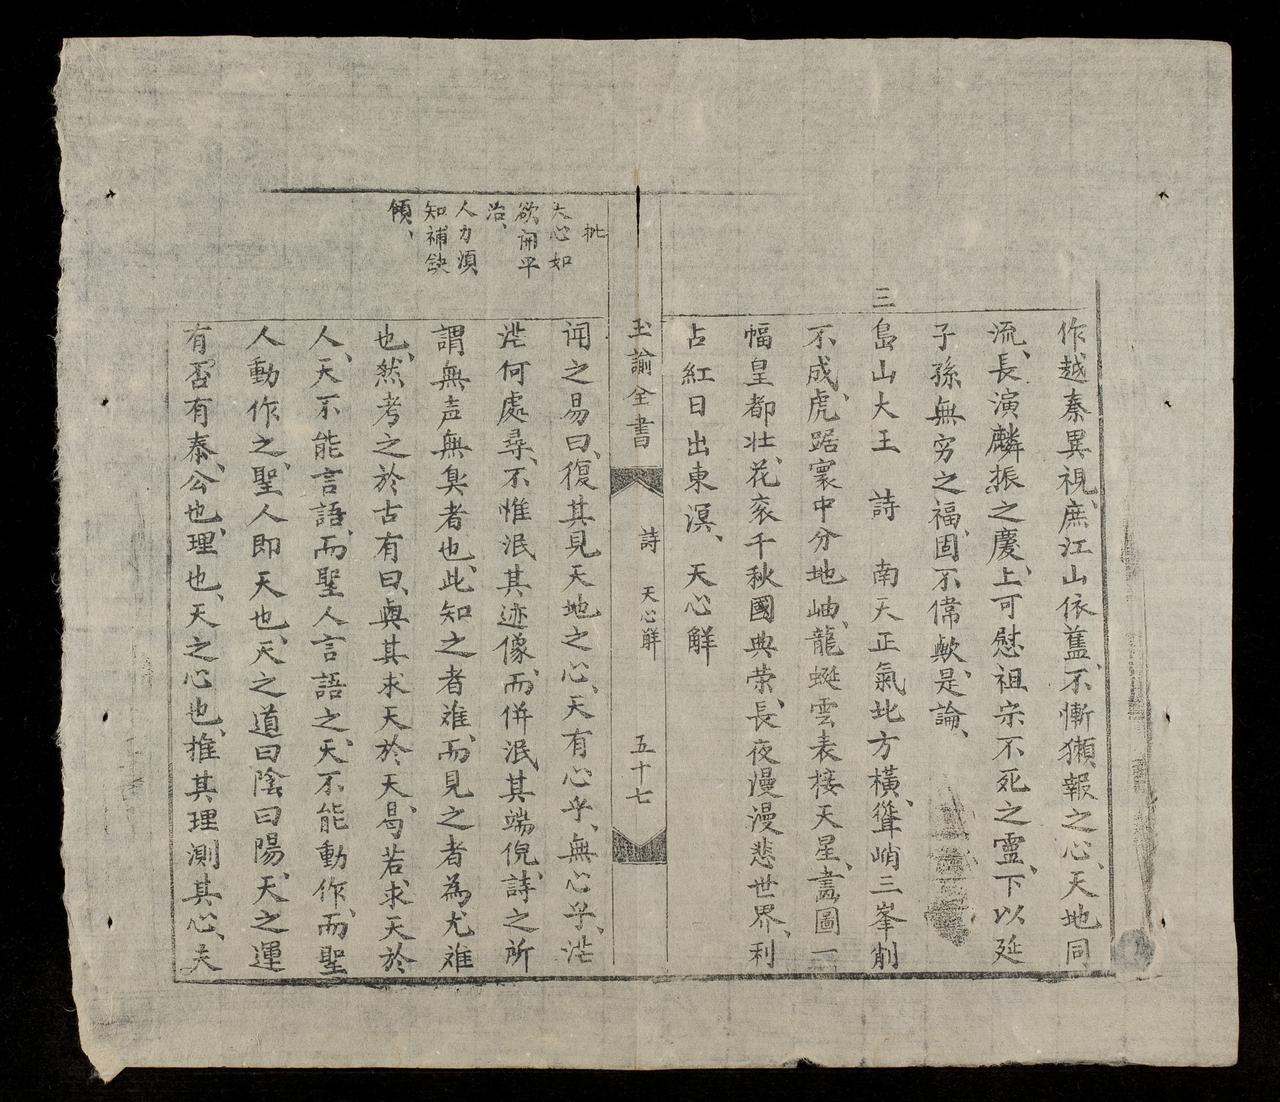 作越秦異視、庶江山依舊、不慚獺報之心、天地同
流、長演麟振之慶、上可慰祖宗不死之靈、下以延
子孫無穷之福、固不偉歟、是論、
三島山大王 詩 南天正氣北方橫、聳峭三峯削
不成、虎踞寰中分地岫、龍蜒雲表接天星、畫圖一
幅皇都壮、花衮千秋國典荣、長夜漫漫悲世界、利
占紅日出東溟、 天心解
玉諭全書 詩 天心解 五十七
批
天心如
欲開平
治、
人力須
知補缺
傾、
闻之易曰、復其見天地之心、天有心乎、無心乎、茫
茫何處尋、不惟泯其迹像、而併泯其端倪、詩之所
謂無声無臭者也、此知之者难、而見之者為尤难
也、然考之於古有曰、與其求天於天、曷若求天於
人、天不能言語、而聖人言語之、天不能動作、而聖
人動作之、聖人即天也、天之道曰陰曰陽、天之運
有否有泰、公也、理也、天之心也、推其理測其心、夫